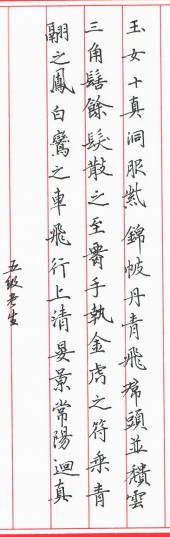 玉女十真洞服紫錦帔丹青飛裙頭並積雲
三角髻餘髮散之至腰手執金虎之符乘青
翮之鳳白鸞之車飛行上清晏景常陽迴真
五級老生